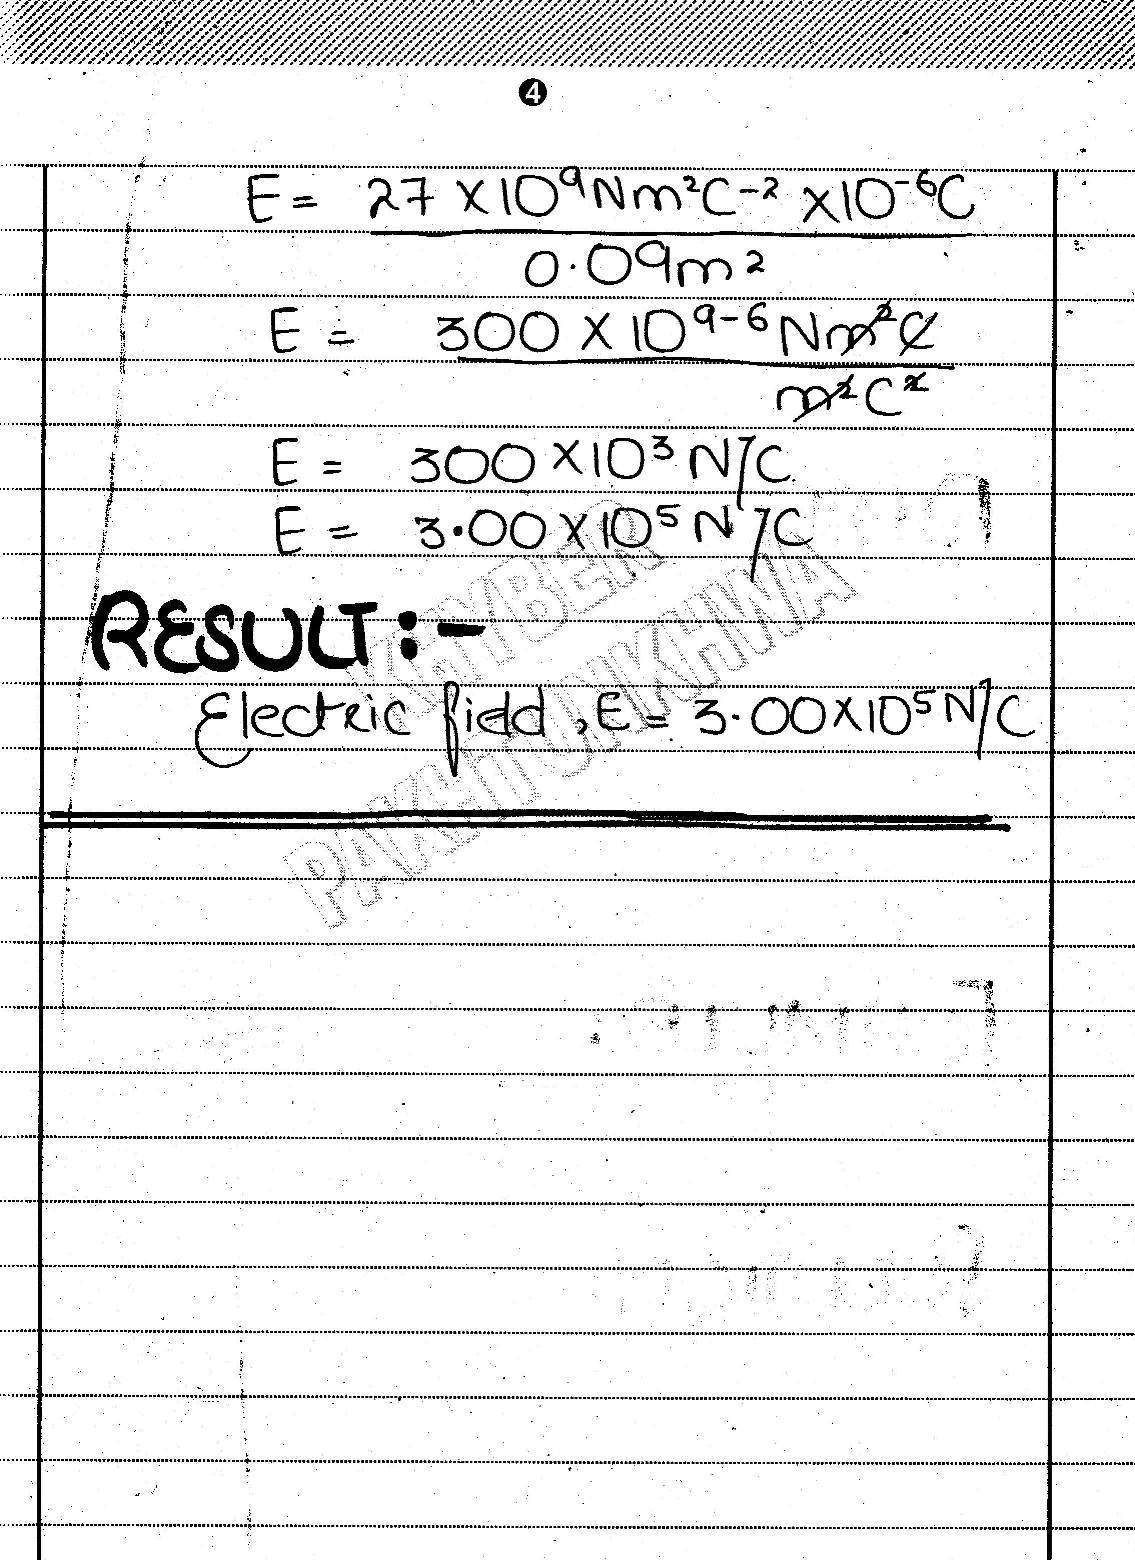 4
E = 27 × 10⁹ Nm²C⁻² × 10⁻⁶C
0.09m²
E = 300 × 10⁹⁻⁶ Nm²C
m²C²
E = 300 × 10³ N/C
E = 3.00 × 10⁵ N/C
RESULT:-
Electric field, E = 3.00×10⁵ N/C
KHYBER
PAKHTUNKHWA